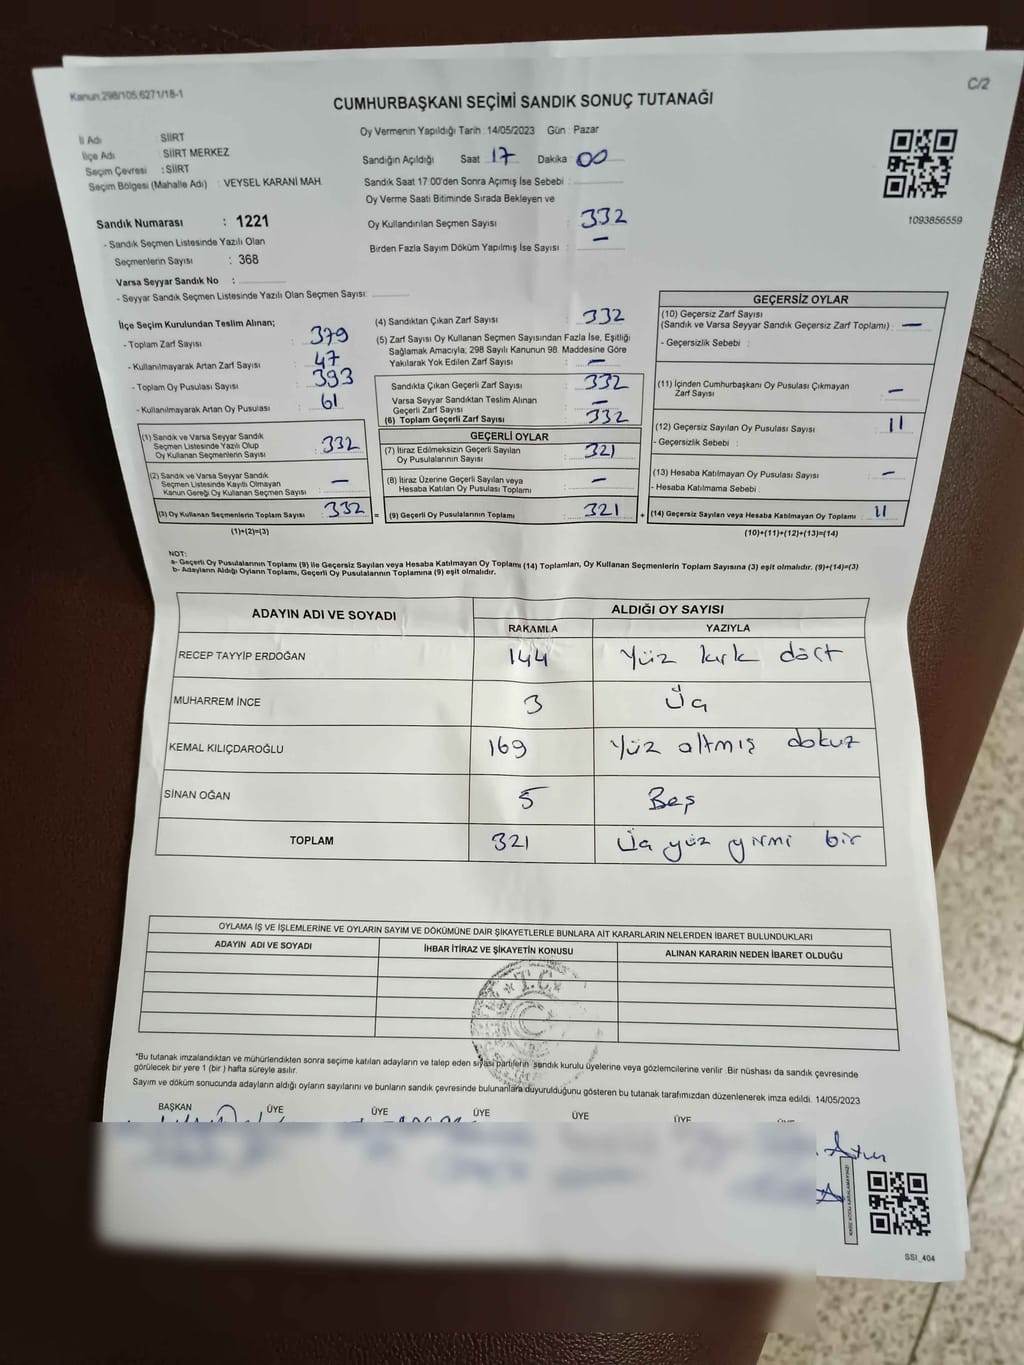 Kanun:298/105;6271/18-1
C/2
CUMHURBAŞKANI SEÇİMİ SANDIK SONUÇ TUTANAĞI
İl Adı : SİİRT
İlçe Adı : SİİRT MERKEZ
Seçim Çevresi : SİİRT
Seçim Bölgesi (Mahalle Adı) : VEYSEL KARANİ MAH.
Sandık Numarası : 1221
- Sandık Seçmen Listesinde Yazılı Olan
Seçmenlerin Sayısı : 368
Varsa Seyyar Sandık No :
- Seyyar Sandık Seçmen Listesinde Yazılı Olan Seçmen Sayısı:
Oy Vermenin Yapıldığı Tarih : 14/05/2023 Gün : Pazar
Sandığın Açıldığı Saat 17 Dakika 00
Sandık Saat 17:00'den Sonra Açımış İse Sebebi :
Oy Verme Saati Bitiminde Sırada Bekleyen ve
Oy Kullandırılan Seçmen Sayısı : 332
Birden Fazla Sayım Döküm Yapılmış İse Sayısı : —
1093856559
İlçe Seçim Kurulundan Teslim Alınan;
- Toplam Zarf Sayısı : 379
- Kullanılmayarak Artan Zarf Sayısı : 47
- Toplam Oy Pusulası Sayısı : 393
- Kullanılmayarak Artan Oy Pusulası : 61
(1) Sandık ve Varsa Seyyar Sandık
Seçmen Listesinde Yazılı Olup
Oy Kullanan Seçmenlerin Sayısı : 332
(2) Sandık ve Varsa Seyyar Sandık
Seçmen Listesinde Kayıtlı Olmayan
Kanun Gereği Oy Kullanan Seçmen Sayısı : —
(3) Oy Kullanan Seçmenlerin Toplam Sayısı : 332 =
(1)+(2)=(3)
(4) Sandıktan Çıkan Zarf Sayısı : 332
(5) Zarf Sayısı Oy Kullanan Seçmen Sayısından Fazla İse, Eşitliği
Sağlamak Amacıyla; 298 Sayılı Kanunun 98. Maddesine Göre
Yakılarak Yok Edilen Zarf Sayısı : —
Sandıkta Çıkan Geçerli Zarf Sayısı : 332
Varsa Seyyar Sandıktan Teslim Alınan
Geçerli Zarf Sayısı : —
(6) Toplam Geçerli Zarf Sayısı : 332
GEÇERLİ OYLAR
(7) İtiraz Edilmeksizin Geçerli Sayılan
Oy Pusulalarının Sayısı : 321
(8) İtiraz Üzerine Geçerli Sayılan veya
Hesaba Katılan Oy Pusulası Toplamı : —
(9) Geçerli Oy Pusulalarının Toplamı : 321 +
GEÇERSİZ OYLAR
(10) Geçersiz Zarf Sayısı
(Sandık ve Varsa Seyyar Sandık Geçersiz Zarf Toplamı) : —
- Geçersizlik Sebebi :
(11) İçinden Cumhurbaşkanı Oy Pusulası Çıkmayan
Zarf Sayısı : —
(12) Geçersiz Sayılan Oy Pusulası Sayısı : 11
- Geçersizlik Sebebi :
(13) Hesaba Katılmayan Oy Pusulası Sayısı : —
- Hesaba Katılmama Sebebi :
(14) Geçersiz Sayılan veya Hesaba Katılmayan Oy Toplamı : 11
(10)+(11)+(12)+(13)=(14)
NOT:
a- Geçerli Oy Pusulalarının Toplamı (9) ile Geçersiz Sayılan veya Hesaba Katılmayan Oy Toplamı (14) Toplamları, Oy Kullanan Seçmenlerin Toplam Sayısına (3) eşit olmalıdır. (9)+(14)=(3)
b- Adayların Aldığı Oyların Toplamı, Geçerli Oy Pusulalarının Toplamına (9) eşit olmalıdır.
ADAYIN ADI VE SOYADI ALDIĞI OY SAYISI
RAKAMLA YAZIYLA
RECEP TAYYİP ERDOĞAN 144 Yüz kırk dört
MUHARREM İNCE 3 Üç
KEMAL KILIÇDAROĞLU 169 Yüz altmış dokuz
SİNAN OĞAN 5 Beş
TOPLAM 321 Üç yüz yirmi bir
OYLAMA İŞ VE İŞLEMLERİNE VE OYLARIN SAYIM VE DÖKÜMÜNE DAİR ŞİKAYETLERLE BUNLARA AİT KARARLARIN NELERDEN İBARET BULUNDUKLARI
ADAYIN ADI VE SOYADI İHBAR İTİRAZ VE ŞİKAYETİN KONUSU ALINAN KARARIN NEDEN İBARET OLDUĞU
T.C.
*Bu tutanak imzalandıktan ve mühürlendikten sonra seçime katılan adayların ve talep eden siyasi partilerin sandık kurulu üyelerine veya gözlemcilerine verilir .Bir nüshası da sandık çevresinde
görülecek bir yere 1 (bir ) hafta süreyle asılır.
Sayım ve döküm sonucunda adayların aldığı oyların sayılarını ve bunların sandık çevresinde bulunanlara duyurulduğunu gösteren bu tutanak tarafımızdan düzenlenerek imza edildi. 14/05/2023
BAŞKAN ÜYE ÜYE ÜYE ÜYE ÜYE ÜYE
SSI_404